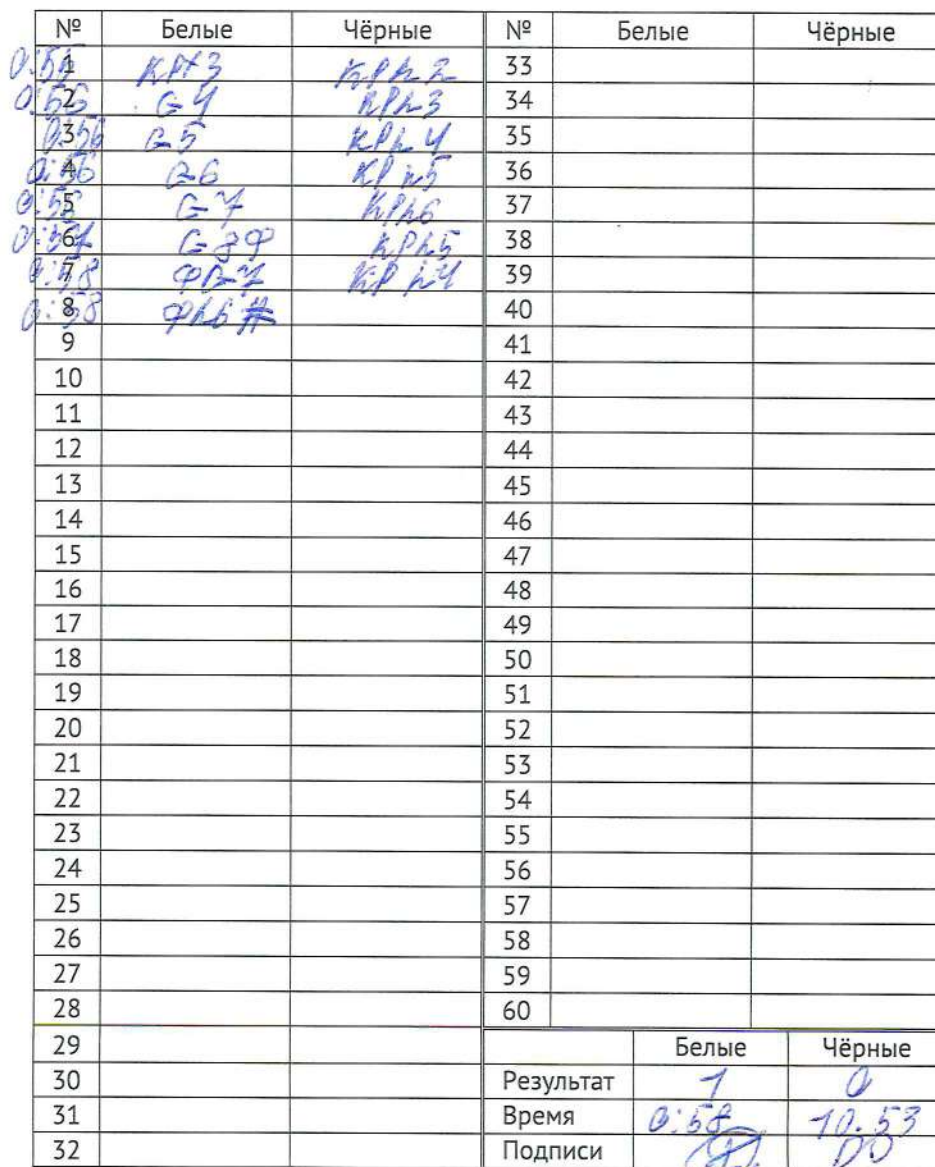 № Белые Чёрные № Белые Чёрные
0:55 1 КРf3 КРh2 33
0:56 2 G4 КРh3 34
0:56 3 G5 КРh4 35
0:56 4 G6 КРh5 36
0:56 5 G7 КРh6 37
0:57 6 G8Ф КРh5 38
0:58 7 КРh4 39
0:58 8 Фh6# 40
9 41
10 42
11 43
12 44
13 45
14 46
15 47
16 48
17 49
18 50
19 51
20 52
21 53
22 54
23 55
24 56
25 57
26 58
27 59
28 60
29 Белые Чёрные
30 Результат 1 0
31 Время 0:58 10.53
32 Подписи